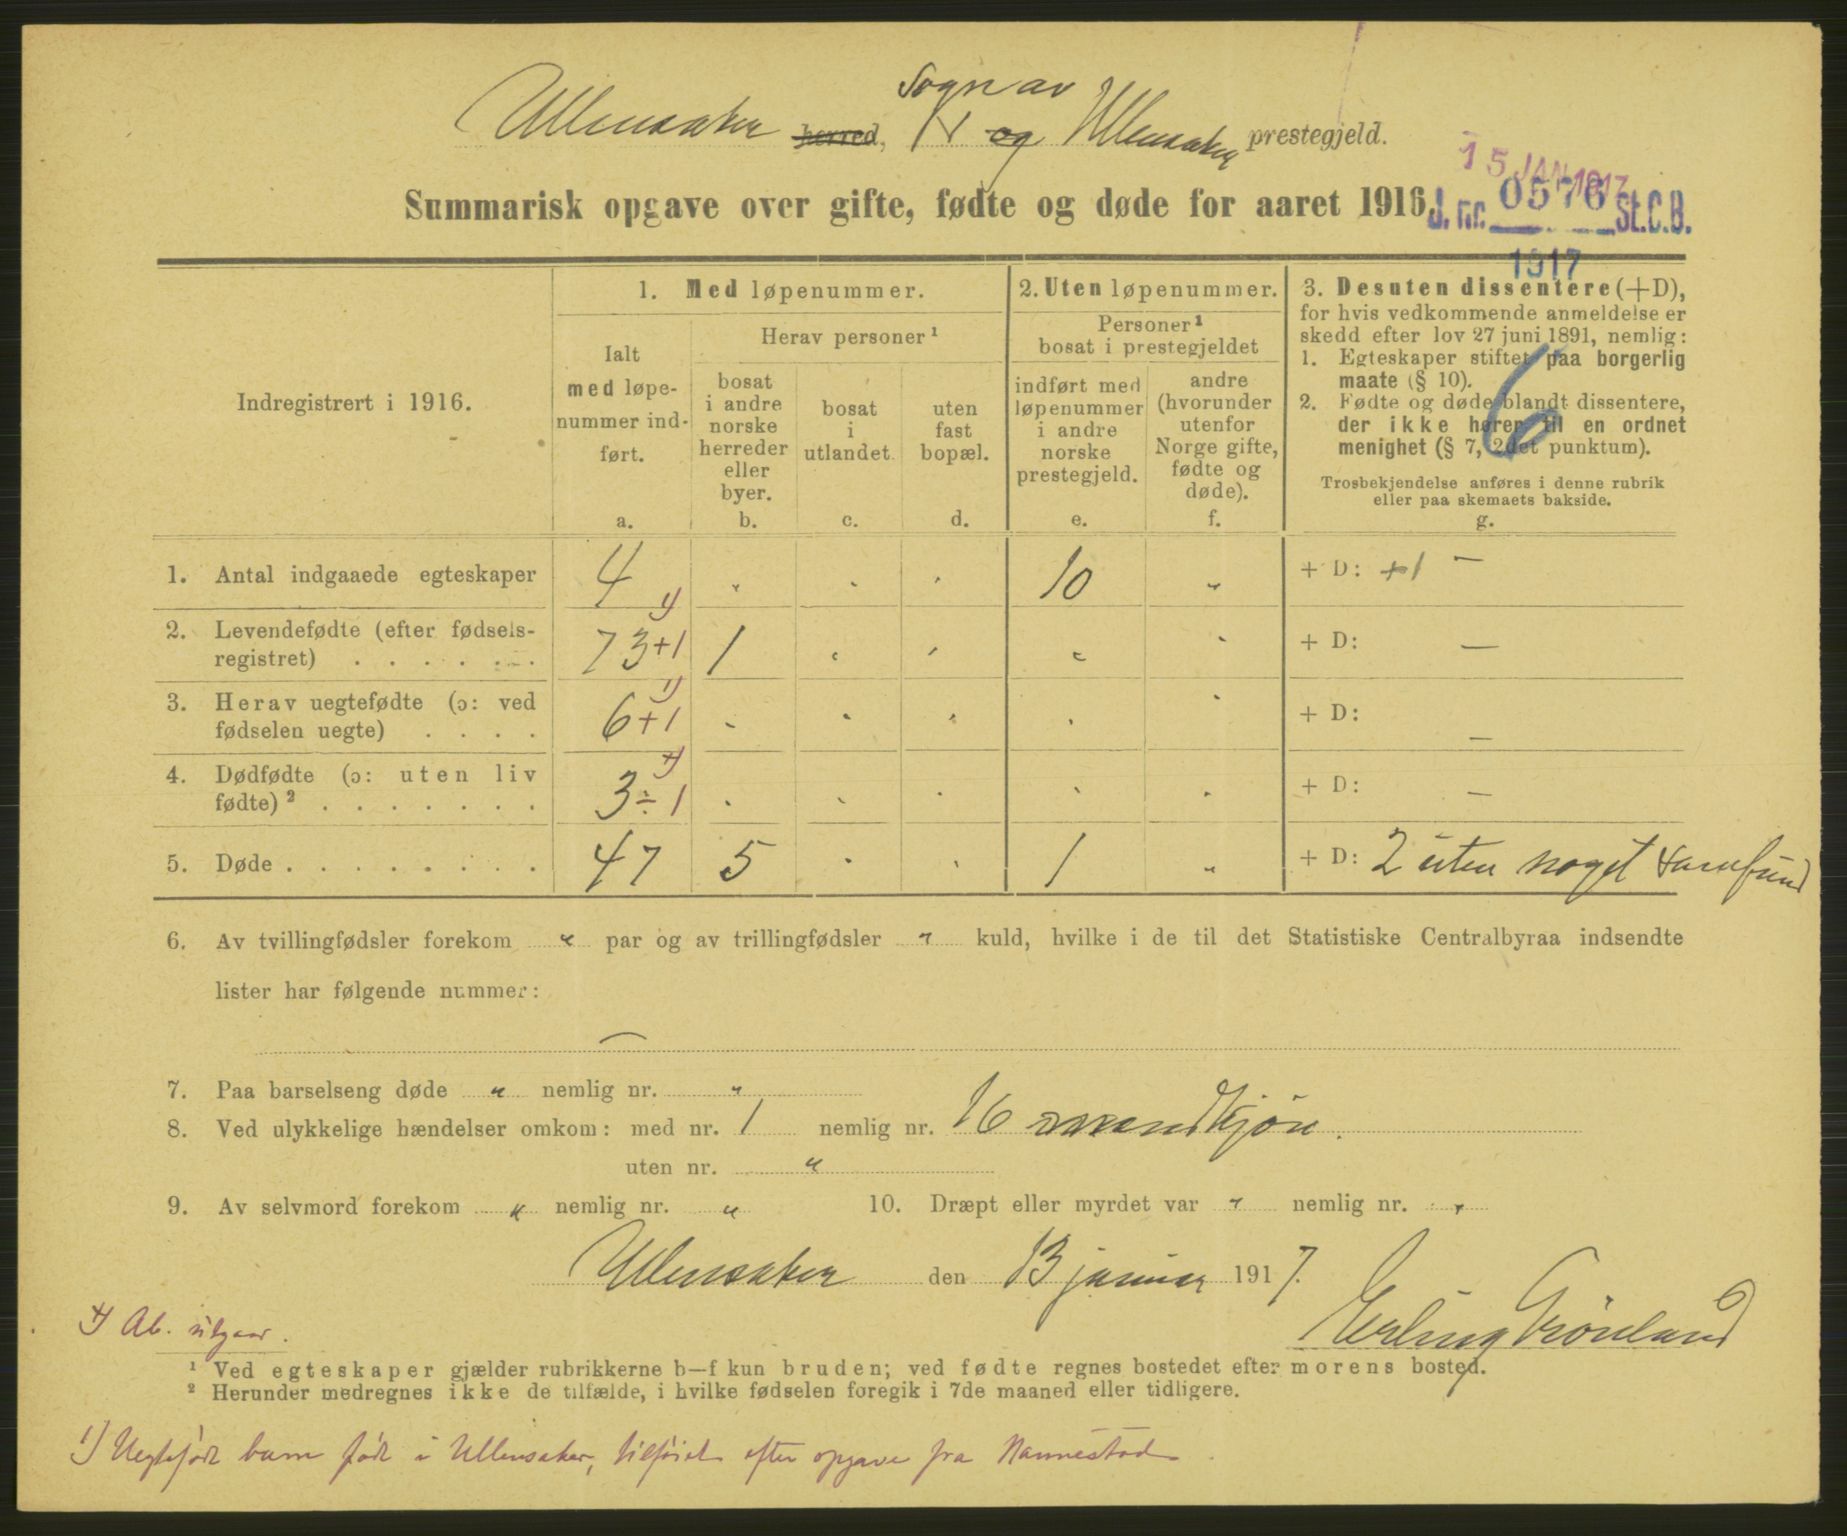 Sogn av
Ullensaker herred, og Ullensaker prestegjeld.
15 JAN 1917
Summarisk opgave over gifte, fødte og døde for aaret 1916.
J. nr. 0576 St.C.B.
1917
Indregistrert i 1916.
1. Med løpenummer.
Ialt
med løpe-
nummer ind-
ført.
a.
Herav personer ¹
bosat
i andre
norske
herreder
eller
byer.
b.
bosat
i
utlandet.
c.
uten
fast
bopæl.
d.
2. Uten løpenummer.
Personer ¹
bosat i prestegjeldet
indført med
løpenummer
i andre
norske
prestegjeld.
e.
andre
(hvorunder
utenfor
Norge gifte,
fødte og
døde).
f.
3. Desuten dissentere (+D),
for hvis vedkommende anmeldelse er
skedd efter lov 27 juni 1891, nemlig:
1. Egteskaper stiftet paa borgerlig
maate (§ 10).
2. Fødte og døde blandt dissentere,
der ikke hører til en ordnet
menighet (§ 7, 2det punktum).
6
Trosbekjendelse anføres i denne rubrik
eller paa skemaets bakside.
g.
1. Antal indgaaede egteskaper 4 " " " 10 " + D: +1 —
2. Levendefødte (efter fødsels-
registret) . . . . . . . 73 +1 ¹) 1 " " " " + D: —
3. Herav uegtefødte (ɔ: ved
fødselen uegte) . . . . 6 +1 ¹) " " " " " + D: —
4. Dødfødte (ɔ: uten liv
fødte) ² . . . . . . . 3 ÷ 1 x) " " " " " + D: —
5. Døde . . . . . . . . 47 5 " " 1 " + D: 2 uten noget samfund
6. Av tvillingfødsler forekom " par og av trillingfødsler " kuld, hvilke i de til det Statistiske Centralbyraa indsendte
lister har følgende nummer:
—
7. Paa barselseng døde " nemlig nr. "
8. Ved ulykkelige hændelser omkom: med nr. 1 nemlig nr. 16 mandkjøn.
uten nr. "
9. Av selvmord forekom " nemlig nr. " 10. Dræpt eller myrdet var " nemlig nr. "
Ullensaker den 13 januar 1917.
Erling Grönland
x) Ab. utgaar.
¹ Ved egteskaper gjælder rubrikkerne b—f kun bruden; ved fødte regnes bostedet efter morens bosted.
² Herunder medregnes ikke de tilfælde, i hvilke fødselen foregik i 7de maaned eller tidligere.
1) Uegtefødt barn født i Ullensaker, tilføiet efter opgave fra Nannestad.